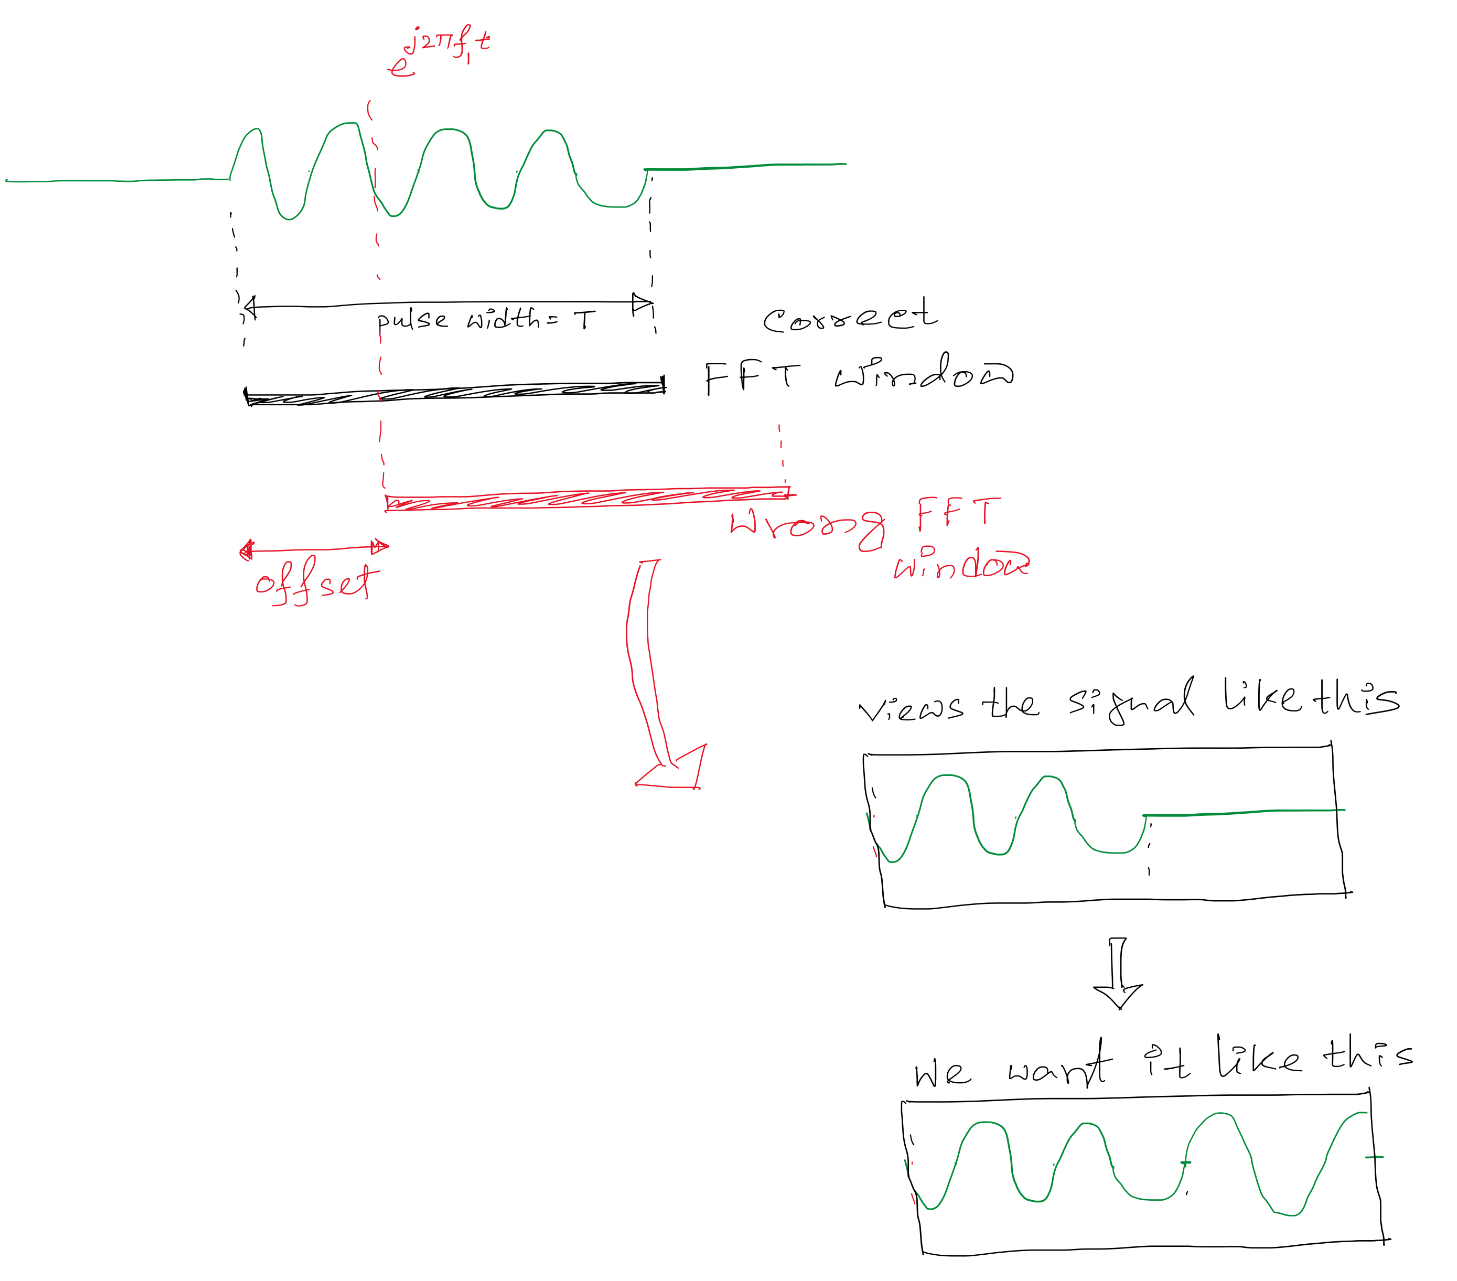 e^{j2πf₁t}
pulse width = T
correct
FFT window
wrong FFT
window
offset
views the signal like this
we want it like this